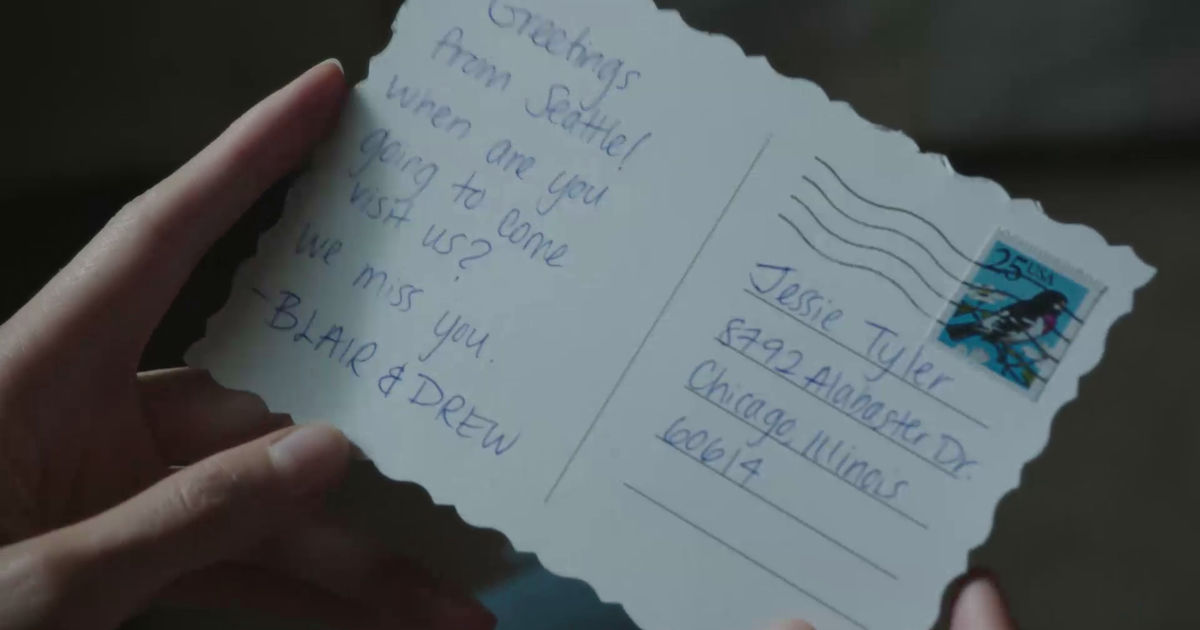 Greetings
from Seattle!
when are you
going to come
visit us?
we miss you.
- BLAIR & DREW
25 USA
Jessie Tyler
8792 Alabaster Dr.
Chicago, Illinois
60614